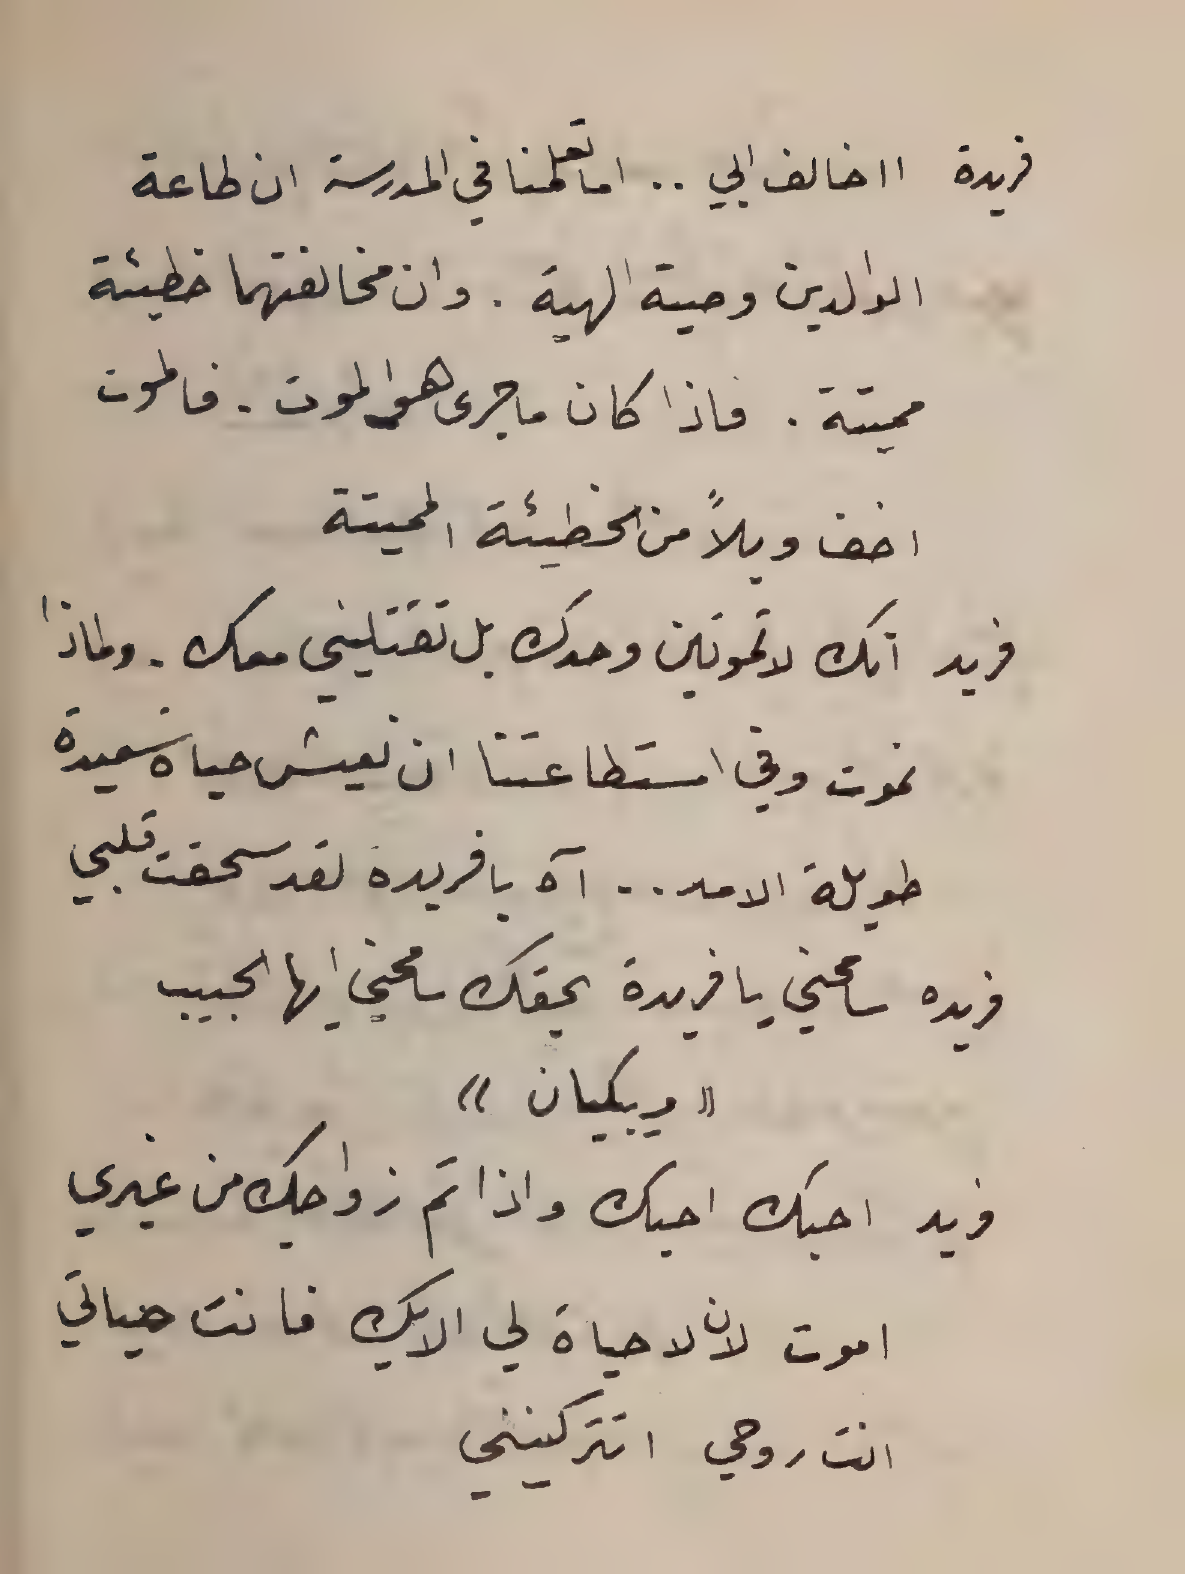 فريدة ااخالف ابي .. اما تعلمنا في المدرسة ان طاعة
الوالدين وصية الهية . وان مخالفتهما خطيئة
مميتة . فاذا كان ماجرى هو الموت . فالموت
اخف ويلاً من الخطيئة المميتة
فريد انك لا تموتين وحدك بل تقتليني معك . ولماذا
نموت وفي استطاعتنا ان نعيش حياة سعيدة
طويلة الامد .. آه يا فريدة لقد سحقت قلبي
فريده سامحني يا فريدة بحقك سامحني ايها الحبيب
« ويبكيان »
فريد احبك احبك واذا تم زواجك من غيري
اموت لان لا حياة لي الا بك فانت حياتي
انت روحي اتتركينني